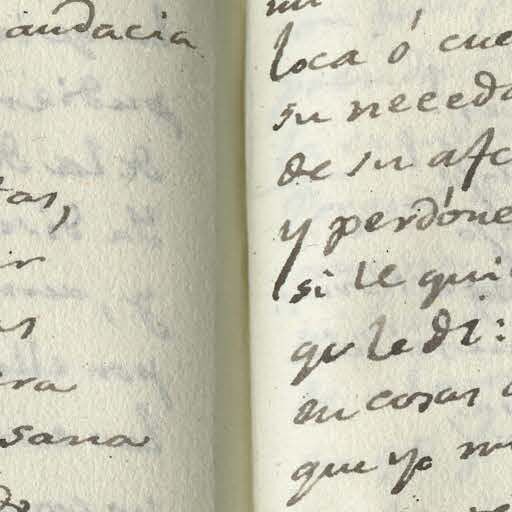 audacia
tas,
ir
as
ra
sana
loca ó cue
su neceda
de su afc
y perdóne
si le qui
qu le di:
en cosas
que yo